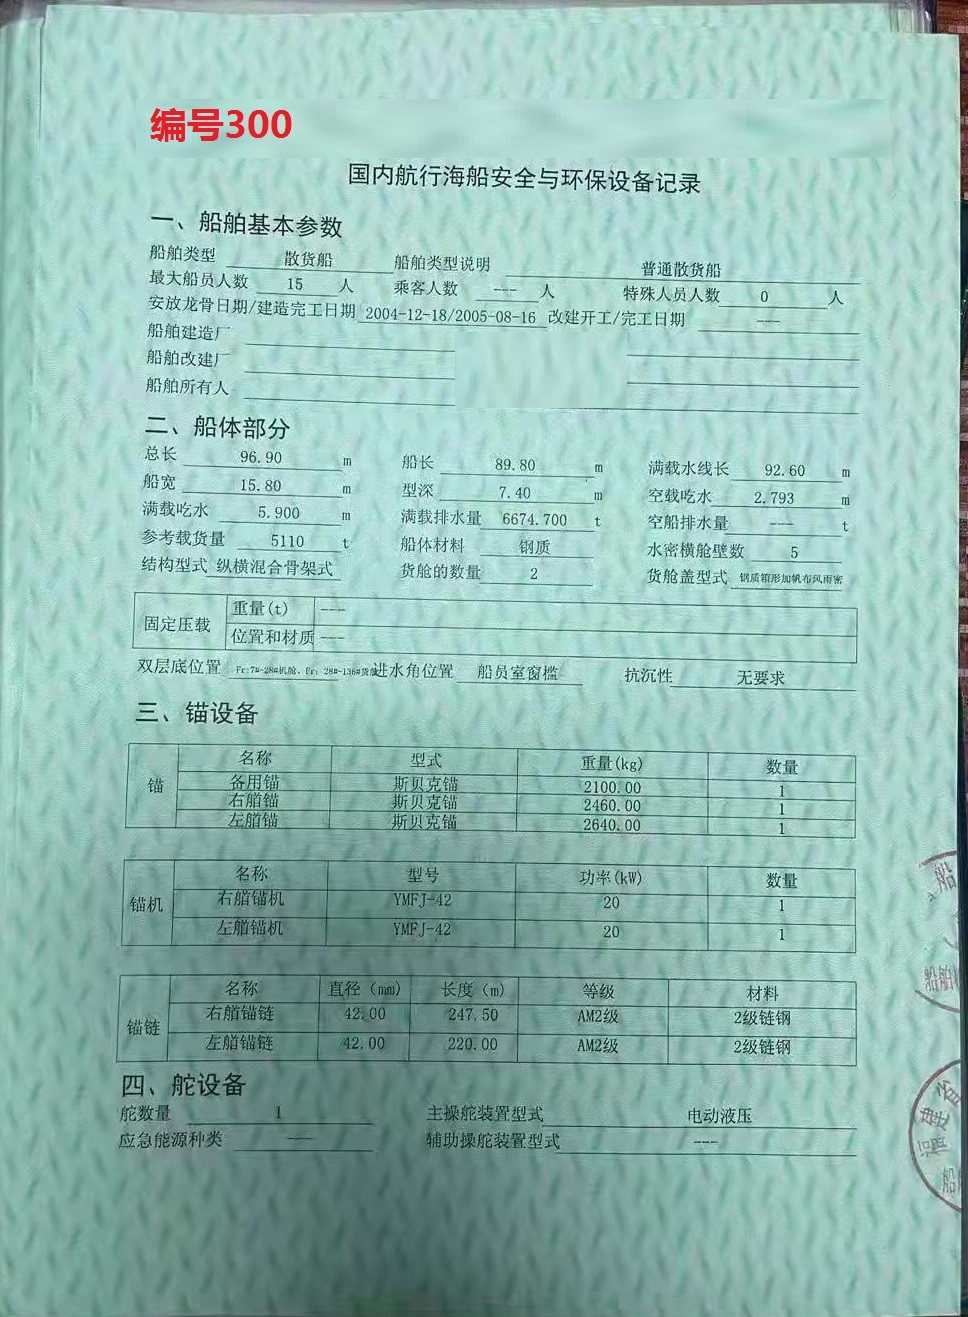 编号300
国内航行海船安全与环保设备记录
一、船舶基本参数
船舶类型 散货船 船舶类型说明 普通散货船
最大船员人数 15 人 乘客人数 --- 人 特殊人员人数 0 人
安放龙骨日期/建造完工日期 2004-12-18/2005-08-16 改建开工/完工日期 ---
船舶建造厂
船舶改建厂
船舶所有人
二、船体部分
总长 96.90 m 船长 89.80 m 满载水线长 92.60 m
船宽 15.80 m 型深 7.40 m 空载吃水 2.793 m
满载吃水 5.900 m 满载排水量 6674.700 t 空船排水量 --- t
参考载货量 5110 t 船体材料 钢质 水密横舱壁数 5
结构型式 纵横混合骨架式 货舱的数量 2 货舱盖型式 钢质箱形加帆布风雨密
固定压载 重量(t) ---
位置和材质 ---
双层底位置 Fr:7#-28#机舱、Fr: 28#-136#货舱 进水角位置 船员室窗槛 抗沉性 无要求
三、锚设备
锚 名称 型式 重量(kg) 数量
备用锚 斯贝克锚 2100.00 1
右艏锚 斯贝克锚 2460.00 1
左艏锚 斯贝克锚 2640.00 1
锚机 名称 型号 功率(kW) 数量
右艏锚机 YMFJ-42 20 1
左艏锚机 YMFJ-42 20 1
锚链 名称 直径（mm) 长度（m) 等级 材料
右艏锚链 42.00 247.50 AM2级 2级链钢
左艏锚链 42.00 220.00 AM2级 2级链钢
四、舵设备
舵数量 1 主操舵装置型式 电动液压
应急能源种类 --- 辅助操舵装置型式 ---
船
船舶
福建省
船